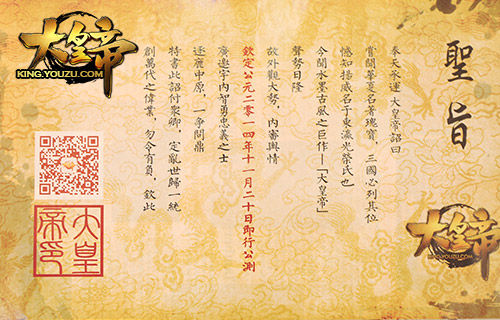 聖旨
奉天承運 大皇帝詔曰
嘗聞華夏名著瑰寶，三國必列其位
憾知揚威名于東瀛光榮氏也
今聞水墨古風之巨作—「大皇帝」
聲勢日隆
故外觀大勢，內審輿情
欽定公元二零一四年十一月二十日即行公測
廣邀宇內智勇忠義之士
逐鹿中原，一争問鼎
特書此詔付衆卿，定亂世歸一統
創萬代之偉業，勿令有負，欽此
大皇帝
KING.YOUZU.COM
大皇帝印
大皇帝